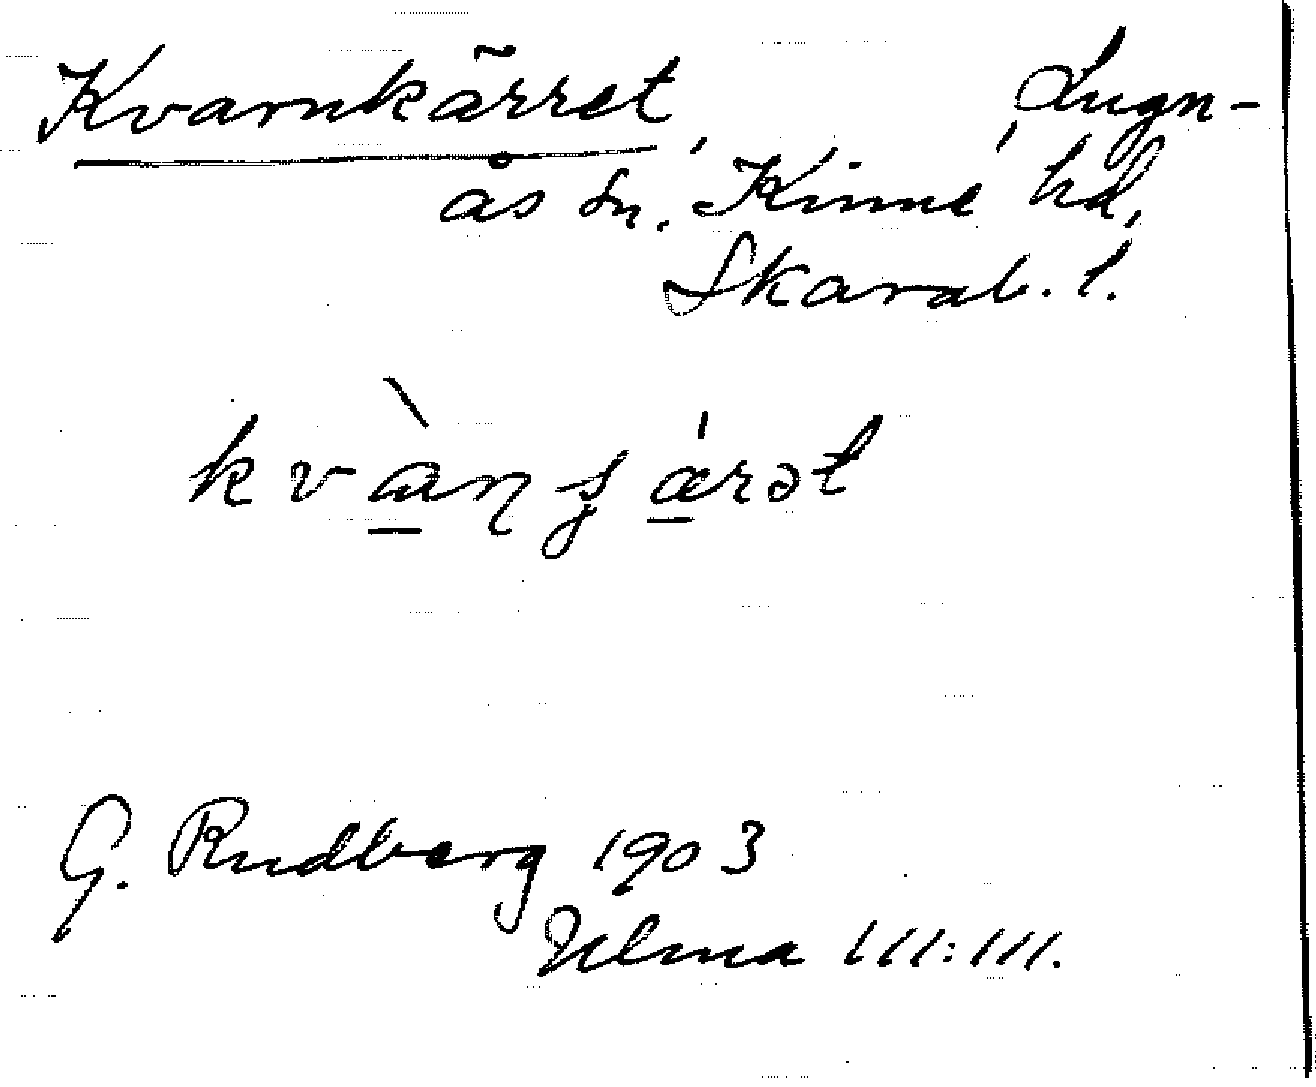 Kvarnkärret, Lugn-
ås sn, Kinne hd,
Skarab. l.
kvàṇʂæ̀rət
G. Rudberg 1903
Ulma 111:111.